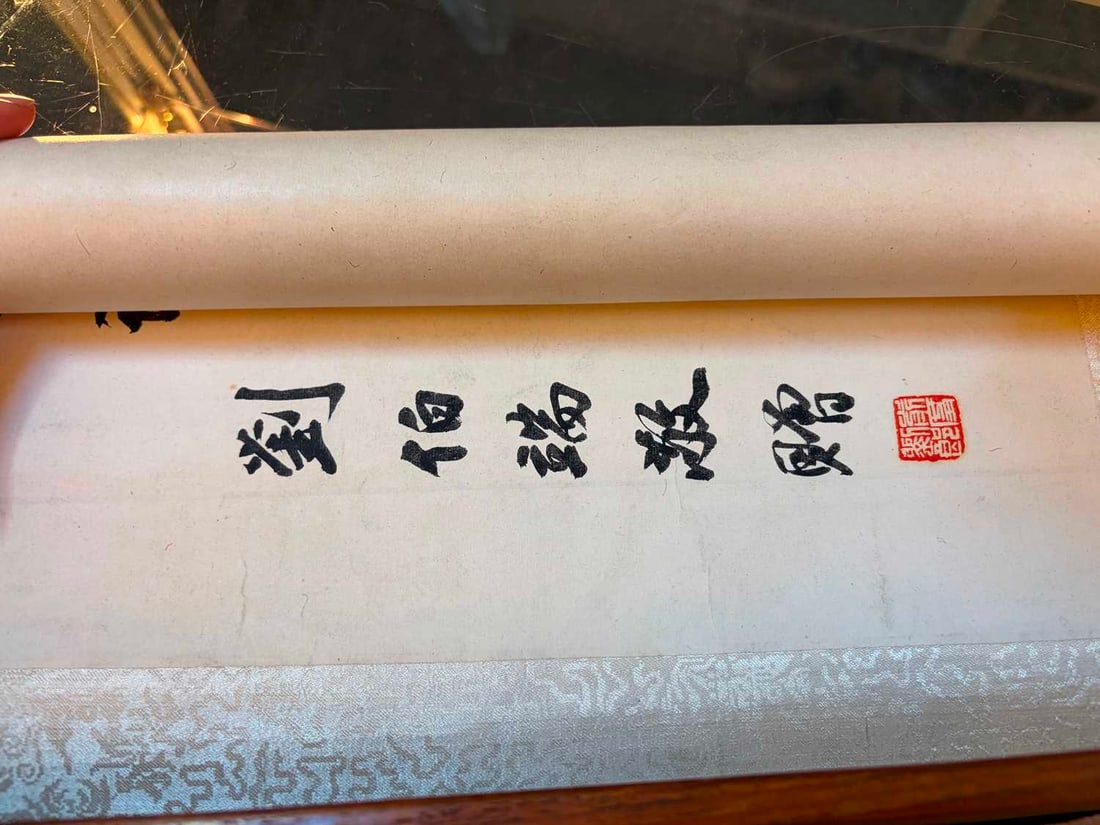 劉伯端敬贈